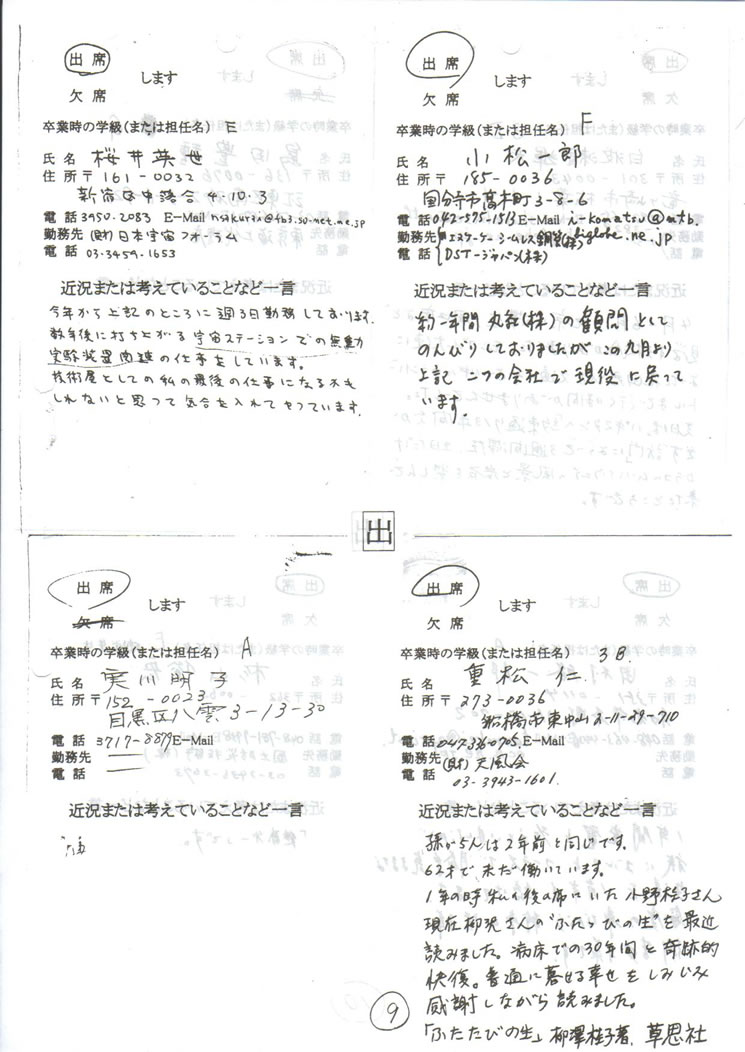 出席
します
欠席
卒業時の学級(または担任名) E
氏名 桜井英世
住所〒161-0032
新宿区中落合4.10.3
電話3950-2083 E-Mail
勤務先 (財)日本宇宙フォーラム
電話 03-3459-1653
近況または考えていることなど一言
今年から上記のところに週3日勤務しております。
数年後に打ち上がる宇宙ステーションでの無重力
実験装置関連の仕事をしています。
技術屋としての私の最後の仕事になるかも
しれないと思って気合を入れてやっています。
出席
します
欠席
卒業時の学級(または担任名) F
氏名 小松一郎
住所〒185-0036
国分寺市高木町3-8-6
電話042-575-1513 E-Mail i-komatsu@mtb.biglobe.ne.jp
勤務先 エヌケーケーシームレス鋼管(株)
電話 DSTージャパン(株)
近況または考えていることなど一言
約一年間 (株)の顧問として
のんびりしておりましたがこの九月より
上記二つの会社で現役に戻って
います。
出
出席
します
欠席
卒業時の学級(または担任名) A
氏名 実川明子
住所〒152-0023
目黒区八雲3-13-30
電話 3717-8879 E-Mail
勤務先
電話
近況または考えていることなど一言
出席
します
欠席
卒業時の学級(または担任名) 3B.
氏名 重松 仁
住所〒273-0036
船橋市東中山2-11-29-710
電話 E-Mail
勤務先 (財)天風会
電話 03-3943-1601.
近況または考えていることなど一言
孫が5人は2年前と同じです。
62才で未だ働いています。
1年の時私の後の席にいた小野桂子さん
現在柳沢さんの"ふたゝびの生"を最近
読みました。病床での30年間と奇跡的
快復。普通に暮せる幸せをしみじみ
感謝しながら読みました。
「ふたたびの生」柳澤桂子著、草思社
9